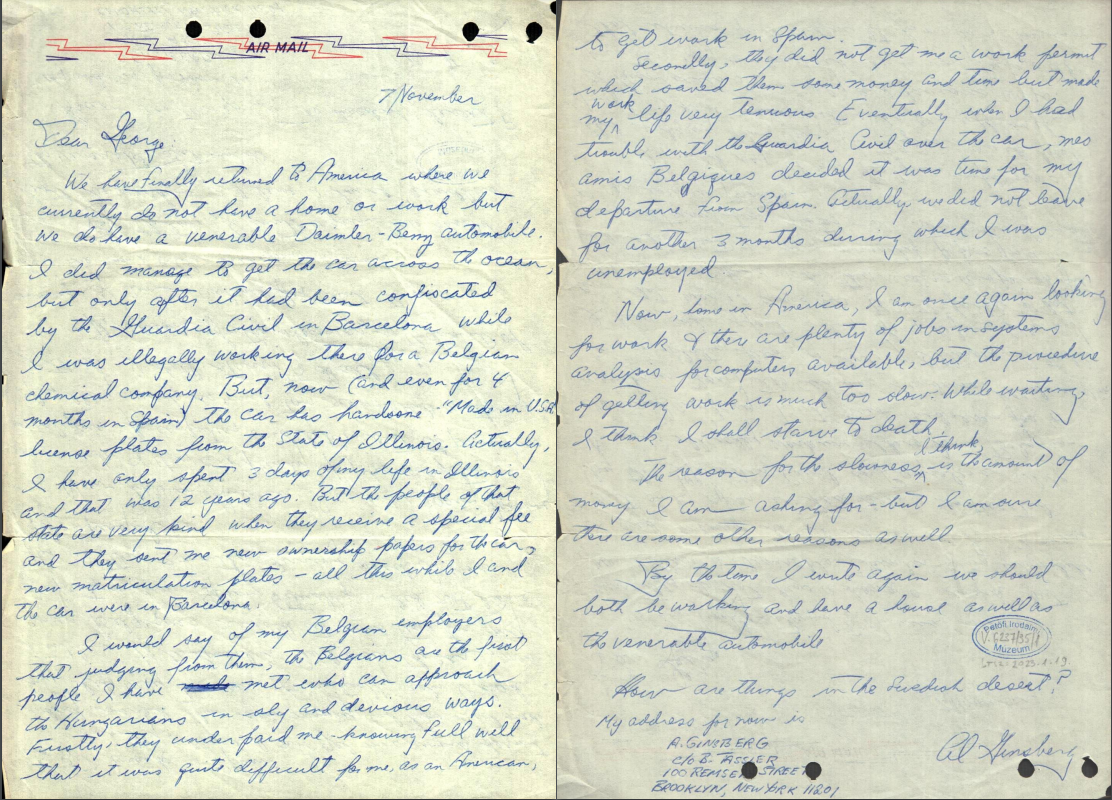 AIR MAIL
7 November
Dear George:
We have finally returned to America where we
currently do not have a home or work but
we do have a venerable Daimler-Benz automobile.
I did manage to get the car across the ocean,
but only after it had been confiscated
by the Guardia Civil in Barcelona while
I was illegally working there for a Belgian
chemical company. But, now (and even for 4
months in Spain) the car has handsone "Made in USA"
license plates from the State of Illinois. Actually,
I have only spent 3 days of my life in Illinois
and that was 12 years ago. But the people of that
state are very kind when they receive a special fee
and they sent me new ownership papers for the car,
new matriculation plates - all this while I and
the car were in Barcelona.
I would say of my Belgian employers
that judging from them, the Belgians are the first
people I have met who can approach
the Hungarians in sly and devious ways.
Firstly, they under paid me - knowing full well
that it was quite difficult for me, as an American,
to get work in Spain.
Secondly, they did not get me a work permit
which saved them some money and time but made
my work life very tenuous. Eventually when I had
trouble with the Guardia Civil over the car, mes
amis Belgiques decided it was time for my
departure from Spain. Actually we did not leave
for another 3 months during which I was
unemployed.
Now, home in America, I am once again looking
for work & there are plenty of jobs in systems
analysis for computers available, but the procedure
of getting work is much too slow. While waiting,
I think I shall starve to death.
The reason for the slowness, I think, is the amount of
money I am asking for - but I am sure
there are some other reasons as well
By the time I write again we should
both be working and have a house as well as
the venerable automobile
Petőfi Irodalmi
V. 5227/35/1
Múzeum
How are things in the Swedish desert?
My address for now is
Al Ginsberg
A. GINSBERG
c/o B. TASSLER
100 REMSEN STREET
BROOKLYN, NEW YORK 11201